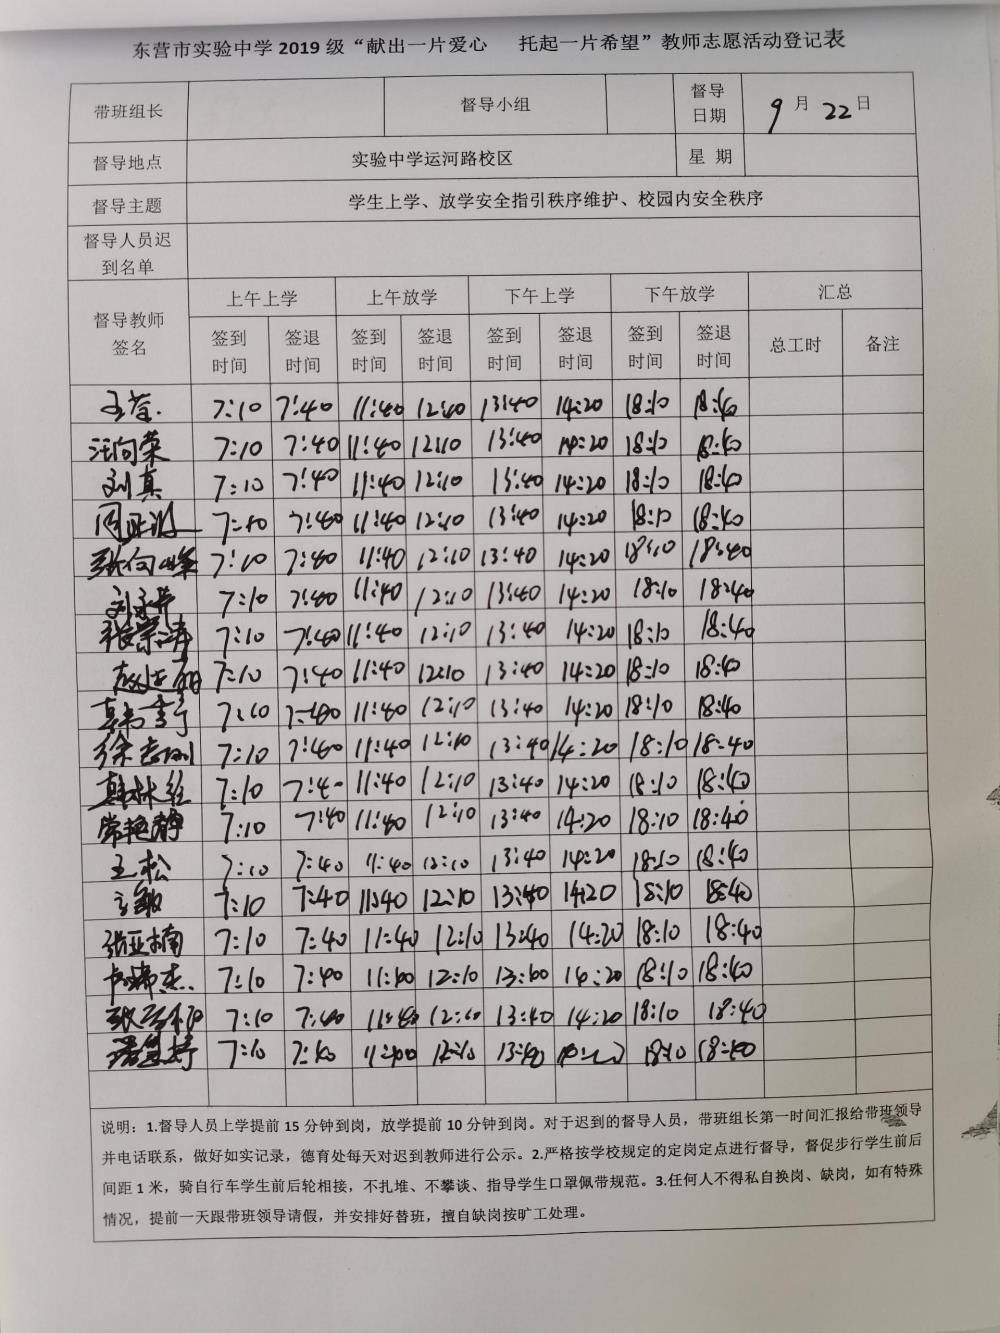 东营市实验中学2019级“献出一片爱心 托起一片希望”教师志愿活动登记表
带班组长 督导小组 督导日期 9月22日
督导地点 实验中学运河路校区 星期
督导主题 学生上学、放学安全指引秩序维护、校园内安全秩序
督导人员迟到名单
督导教师签名 上午上学 上午放学 下午上学 下午放学 汇总
签到时间 签退时间 签到时间 签退时间 签到时间 签退时间 签到时间 签退时间 总工时 备注
7:10 7:40 11:40 12:10 13:40 14:20 18:10 18:40
汪向荣 7:10 7:40 11:40 12:10 13:40 14:20 18:10 18:40
刘真 7:10 7:40 11:40 12:10 13:40 14:20 18:10 18:40
7:10 7:40 11:40 12:10 13:40 14:20 18:10 18:40
张向峰 7:10 7:40 11:40 12:10 13:40 14:20 18:10 18:40
7:10 7:40 11:40 12:10 13:40 14:20 18:10 18:40
张崇涛 7:10 7:40 11:40 12:10 13:40 14:20 18:10 18:40
7:10 7:40 11:40 12:10 13:40 14:20 18:10 18:40
7:10 7:40 11:40 12:10 13:40 14:20 18:10 18:40
徐志刚 7:10 7:40 11:40 12:10 13:40 14:20 18:10 18:40
7:10 7:40 11:40 12:10 13:40 14:20 18:10 18:40
常艳静 7:10 7:40 11:40 12:10 13:40 14:20 18:10 18:40
王松 7:10 7:40 11:40 12:10 13:40 14:20 18:10 18:40
7:10 7:40 11:40 12:10 13:40 14:20 18:10 18:40
张亚楠 7:10 7:40 11:40 12:10 13:40 14:20 18:10 18:40
7:10 7:40 11:40 12:10 13:40 14:20 18:10 18:40
7:10 7:40 11:40 12:10 13:40 14:20 18:10 18:40
7:10 7:40 11:40 12:10 13:40 18:10 18:40
说明：1.督导人员上学提前15分钟到岗，放学提前10分钟到岗。对于迟到的督导人员，带班组长第一时间汇报给带班领导
并电话联系，做好如实记录，德育处每天对迟到教师进行公示。2.严格按学校规定的定岗定点进行督导，督促步行学生前后
间距1米，骑自行车学生前后轮相接，不扎堆、不攀谈、指导学生口罩佩带规范。3.任何人不得私自换岗、缺岗，如有特殊
情况，提前一天跟带班领导请假，并安排好替班，擅自缺岗按旷工处理。